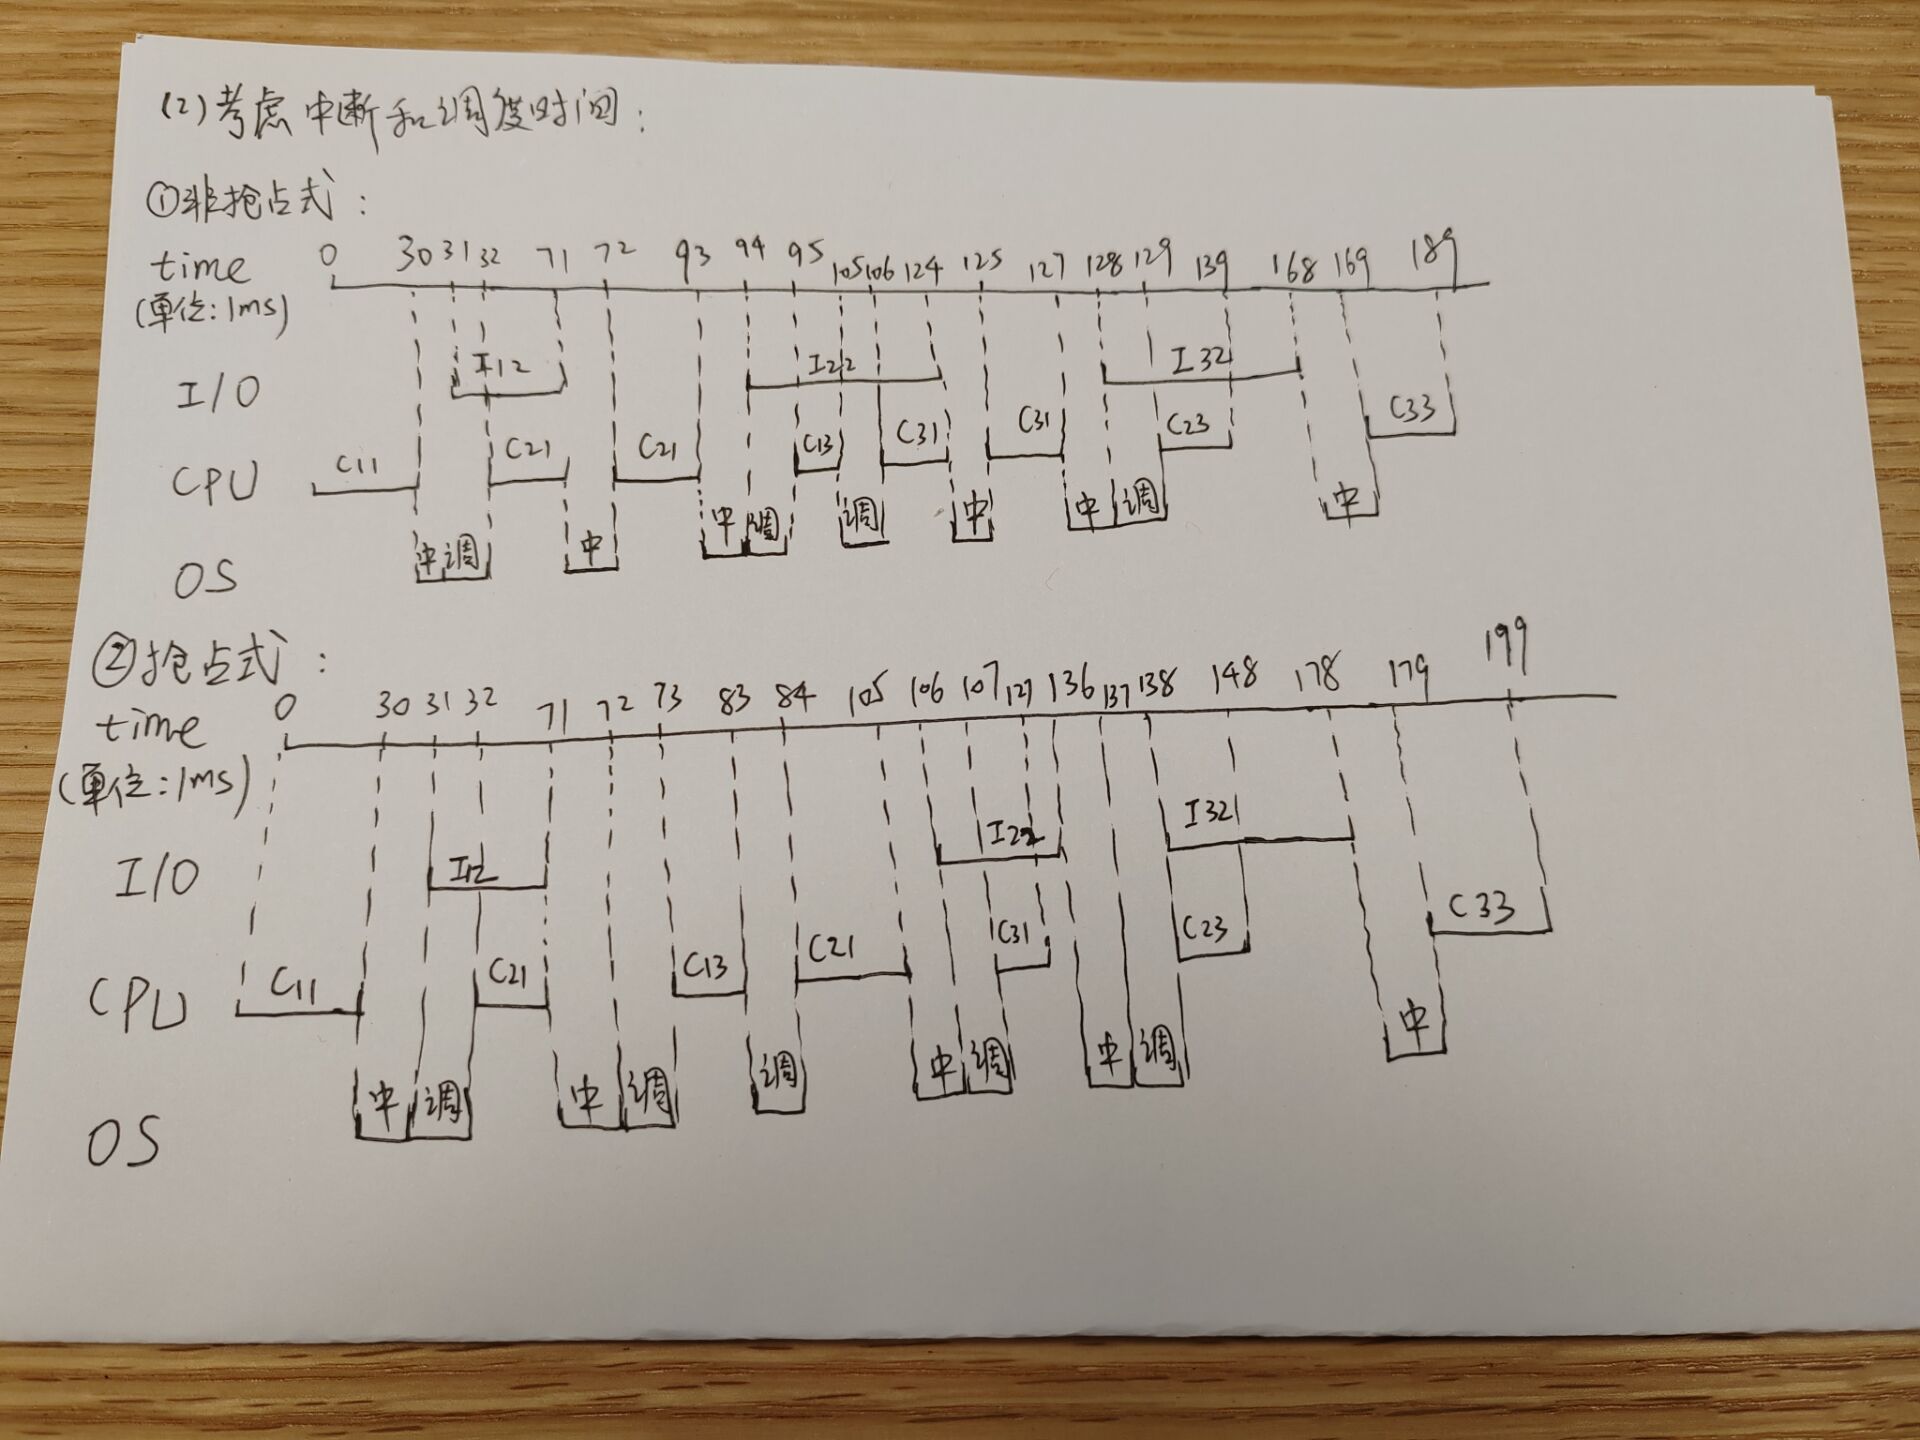 (2)考虑中断和调度时间:
①非抢占式:
time 0 30 31 32 71 72 93 94 95 105 106 124 125 127 128 129 139 168 169 189
(单位:1ms)
I/O I12 I22 I32
CPU C11 C21 C21 C13 C31 C31 C23 C33
OS 中 调 中 中 调 调 中 中 调 中
②抢占式:
time 0 30 31 32 71 72 73 83 84 105 106 107 127 136 137 138 148 178 179 199
(单位:1ms)
I/O I12 I22 I32
CPU C11 C21 C13 C21 C31 C23 C33
OS 中 调 中 调 调 中 调 中 调 中